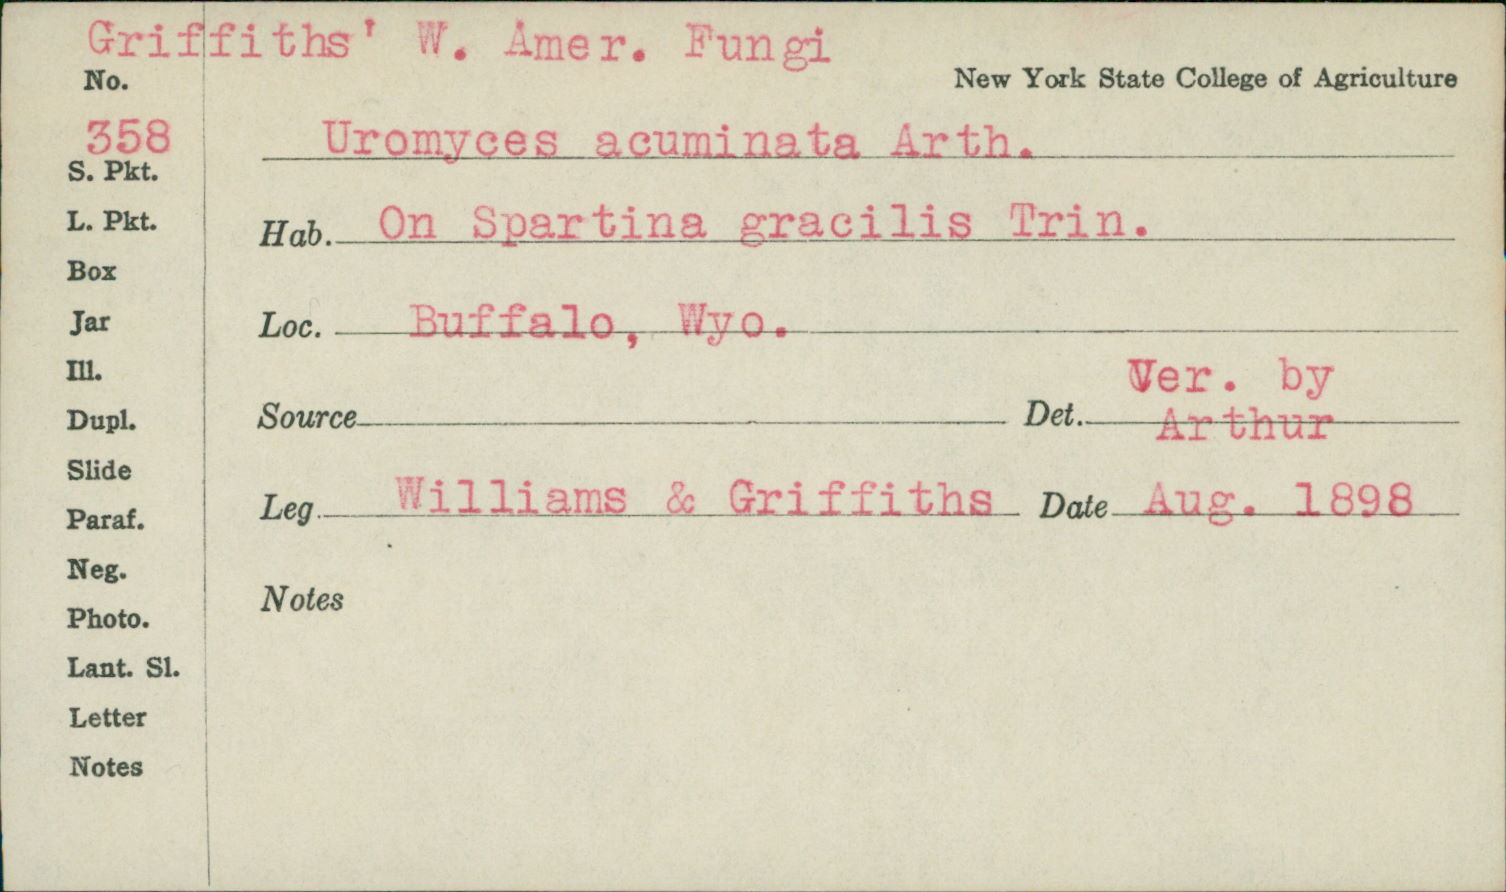 Griffiths' W. Amer. Fungi
No.
New York State College of Agriculture
358
Uromyces acuminata Arth.
S. Pkt.
L. Pkt.
Hab. On Spartina gracilis Trin.
Box
Jar
Loc. Buffalo, Wyo.
Ill.
Dupl.
Source
Det. Ver. by
Arthur
Slide
Paraf.
Leg. Williams & Griffiths
Date Aug. 1898
Neg.
Notes
Photo.
Lant. Sl.
Letter
Notes